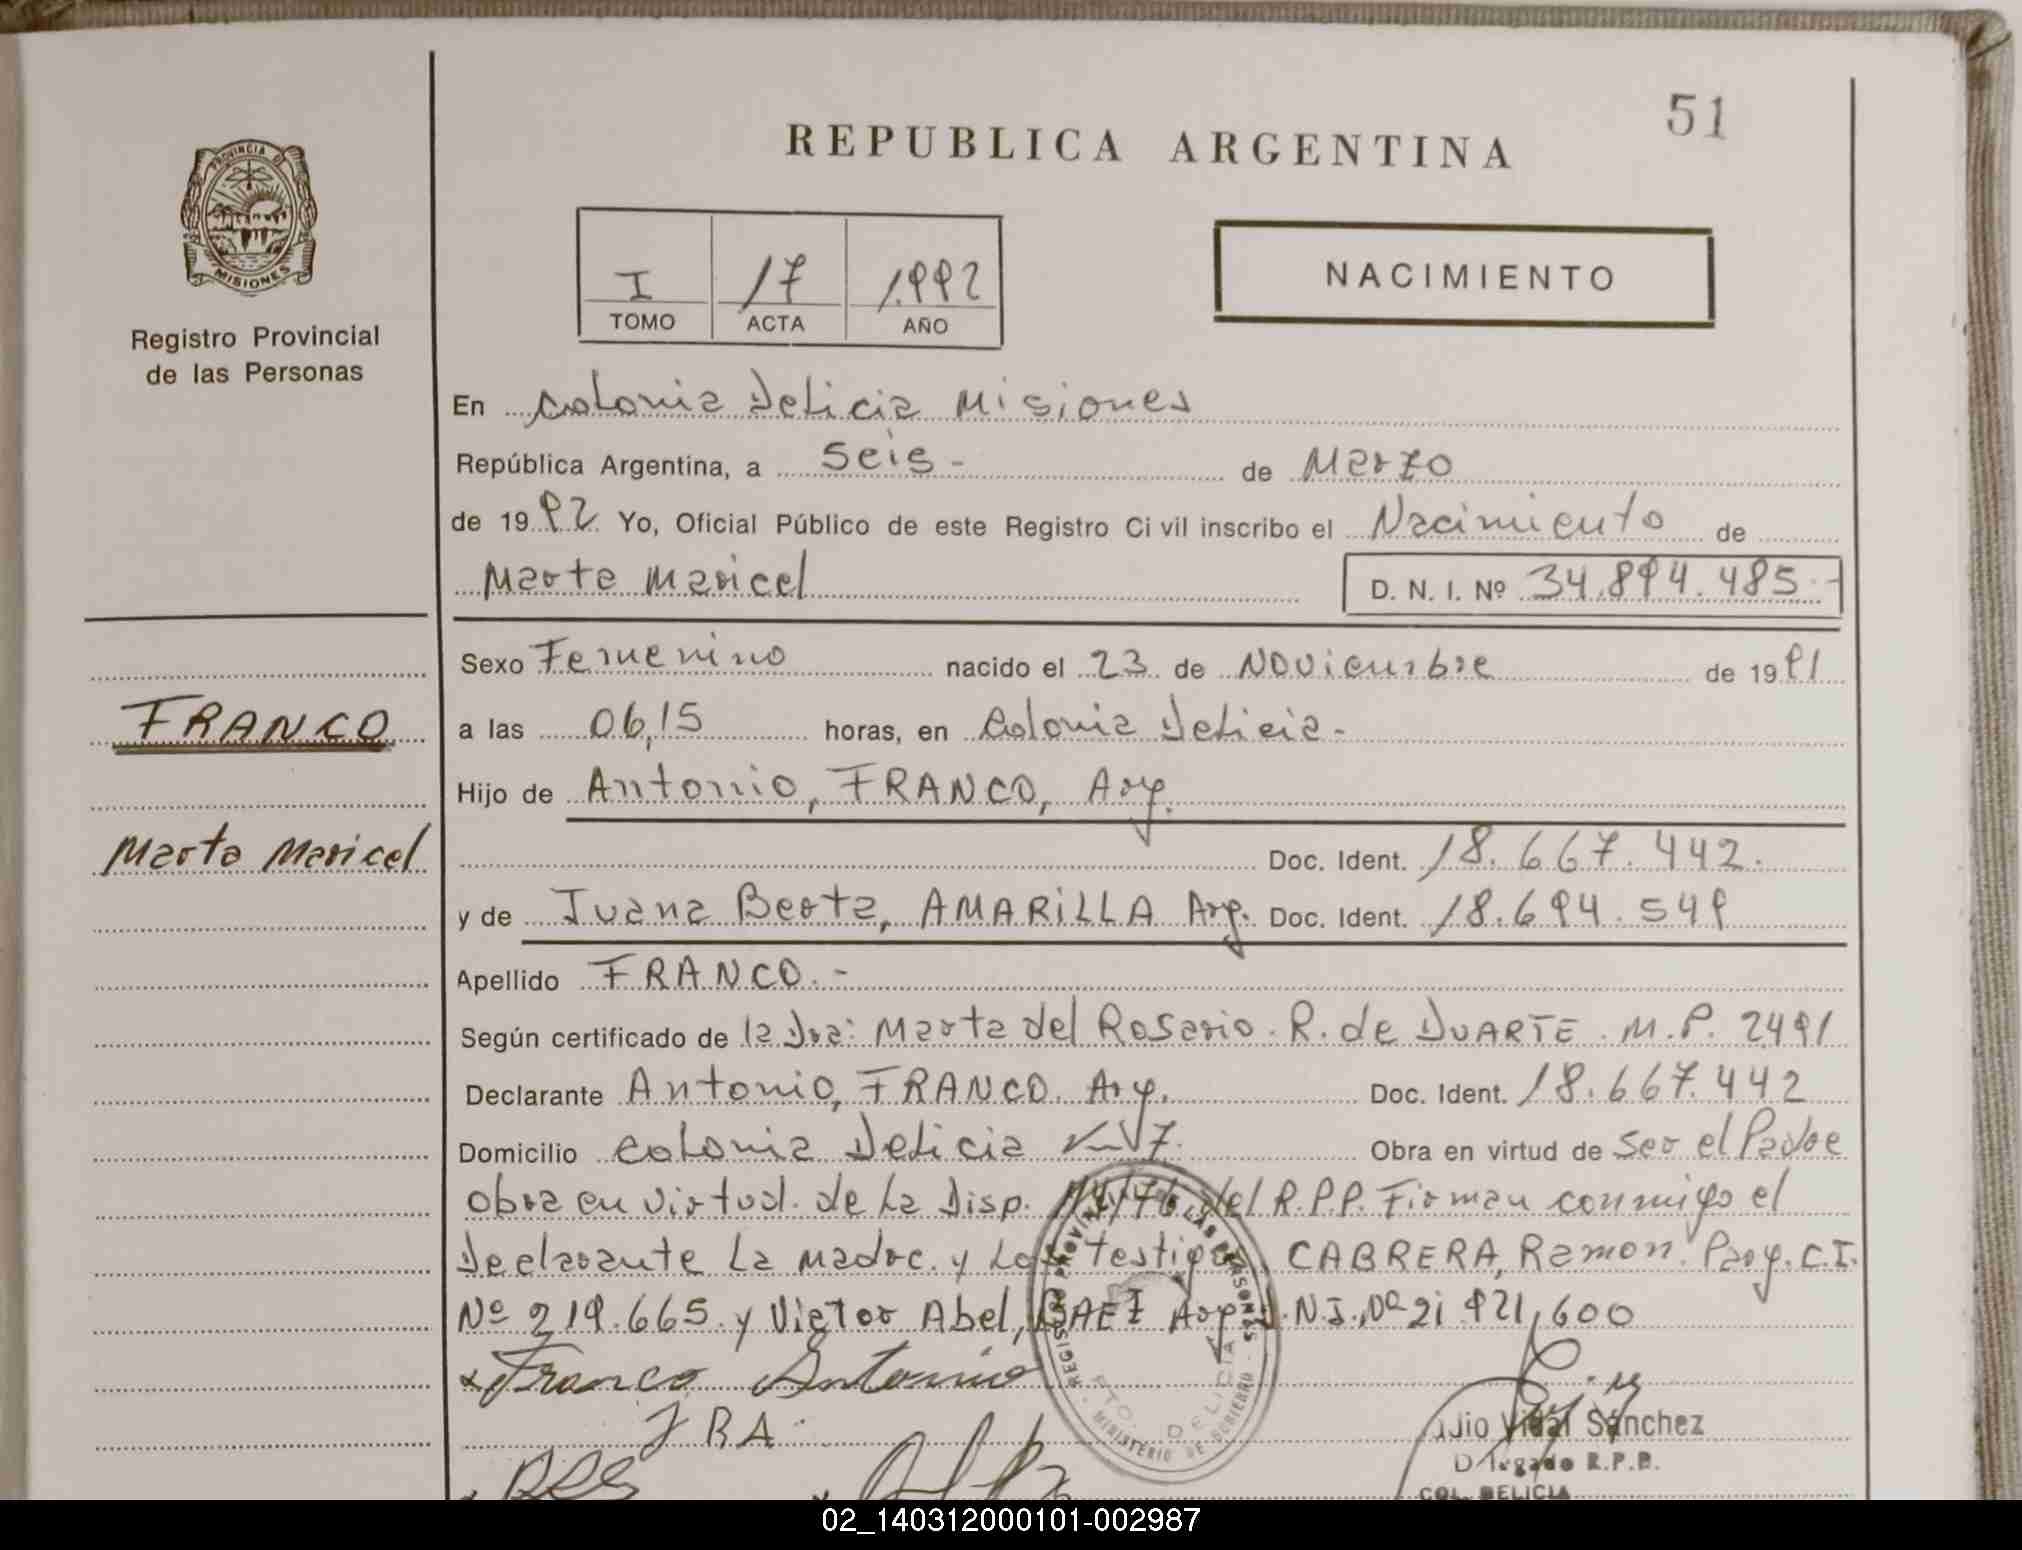 51
REPUBLICA ARGENTINA
PROVINCIA DE
MISIONES
Registro Provincial
de las Personas
I 17 1.992
TOMO ACTA AÑO
NACIMIENTO
En Colonia Delicia Misiones
República Argentina, a Seis - de Marzo
de 1992 Yo, Oficial Público de este Registro Civil inscribo el Nacimiento de
Marta Maricel D. N. I. Nº 34.894.485.-
Sexo Femenino nacido el 23 de Noviembre de 1991
FRANCO
a las 06,15 horas, en Colonia Delicia.-
Hijo de Antonio, FRANCO, Arg.
Marta Maricel
Doc. Ident. 18.667.442.
y de Juana Berta, AMARILLA Arg. Doc. Ident. 18.694.549
Apellido FRANCO.-
Según certificado de la Dra: Marta del Rosario R. de DUARTE. M.P. 2491
Declarante Antonio, FRANCO. Arg. Doc. Ident. 18.667.442
Domicilio Colonia Delicia Km 7. Obra en virtud de Ser el Padre
obra en virtud. de La Disp. /76 del R.P.P. Firman conmigo el
Declarante La madre. y Los testigos CABRERA, Ramon. Parg. C.I.
Nº 219.665. y Victor Abel, Arg D.N.I. Nº 21.921,600
x Franco Antonio
JBA
REGISTRO PROVINCIAL DE LAS PERSONAS
MINISTERIO DE GOBIERNO
PTO. DELICIA
Julio Vidal Sánchez
Delegado R.P.P.
COL. DELICIA
02_140312000101-002987